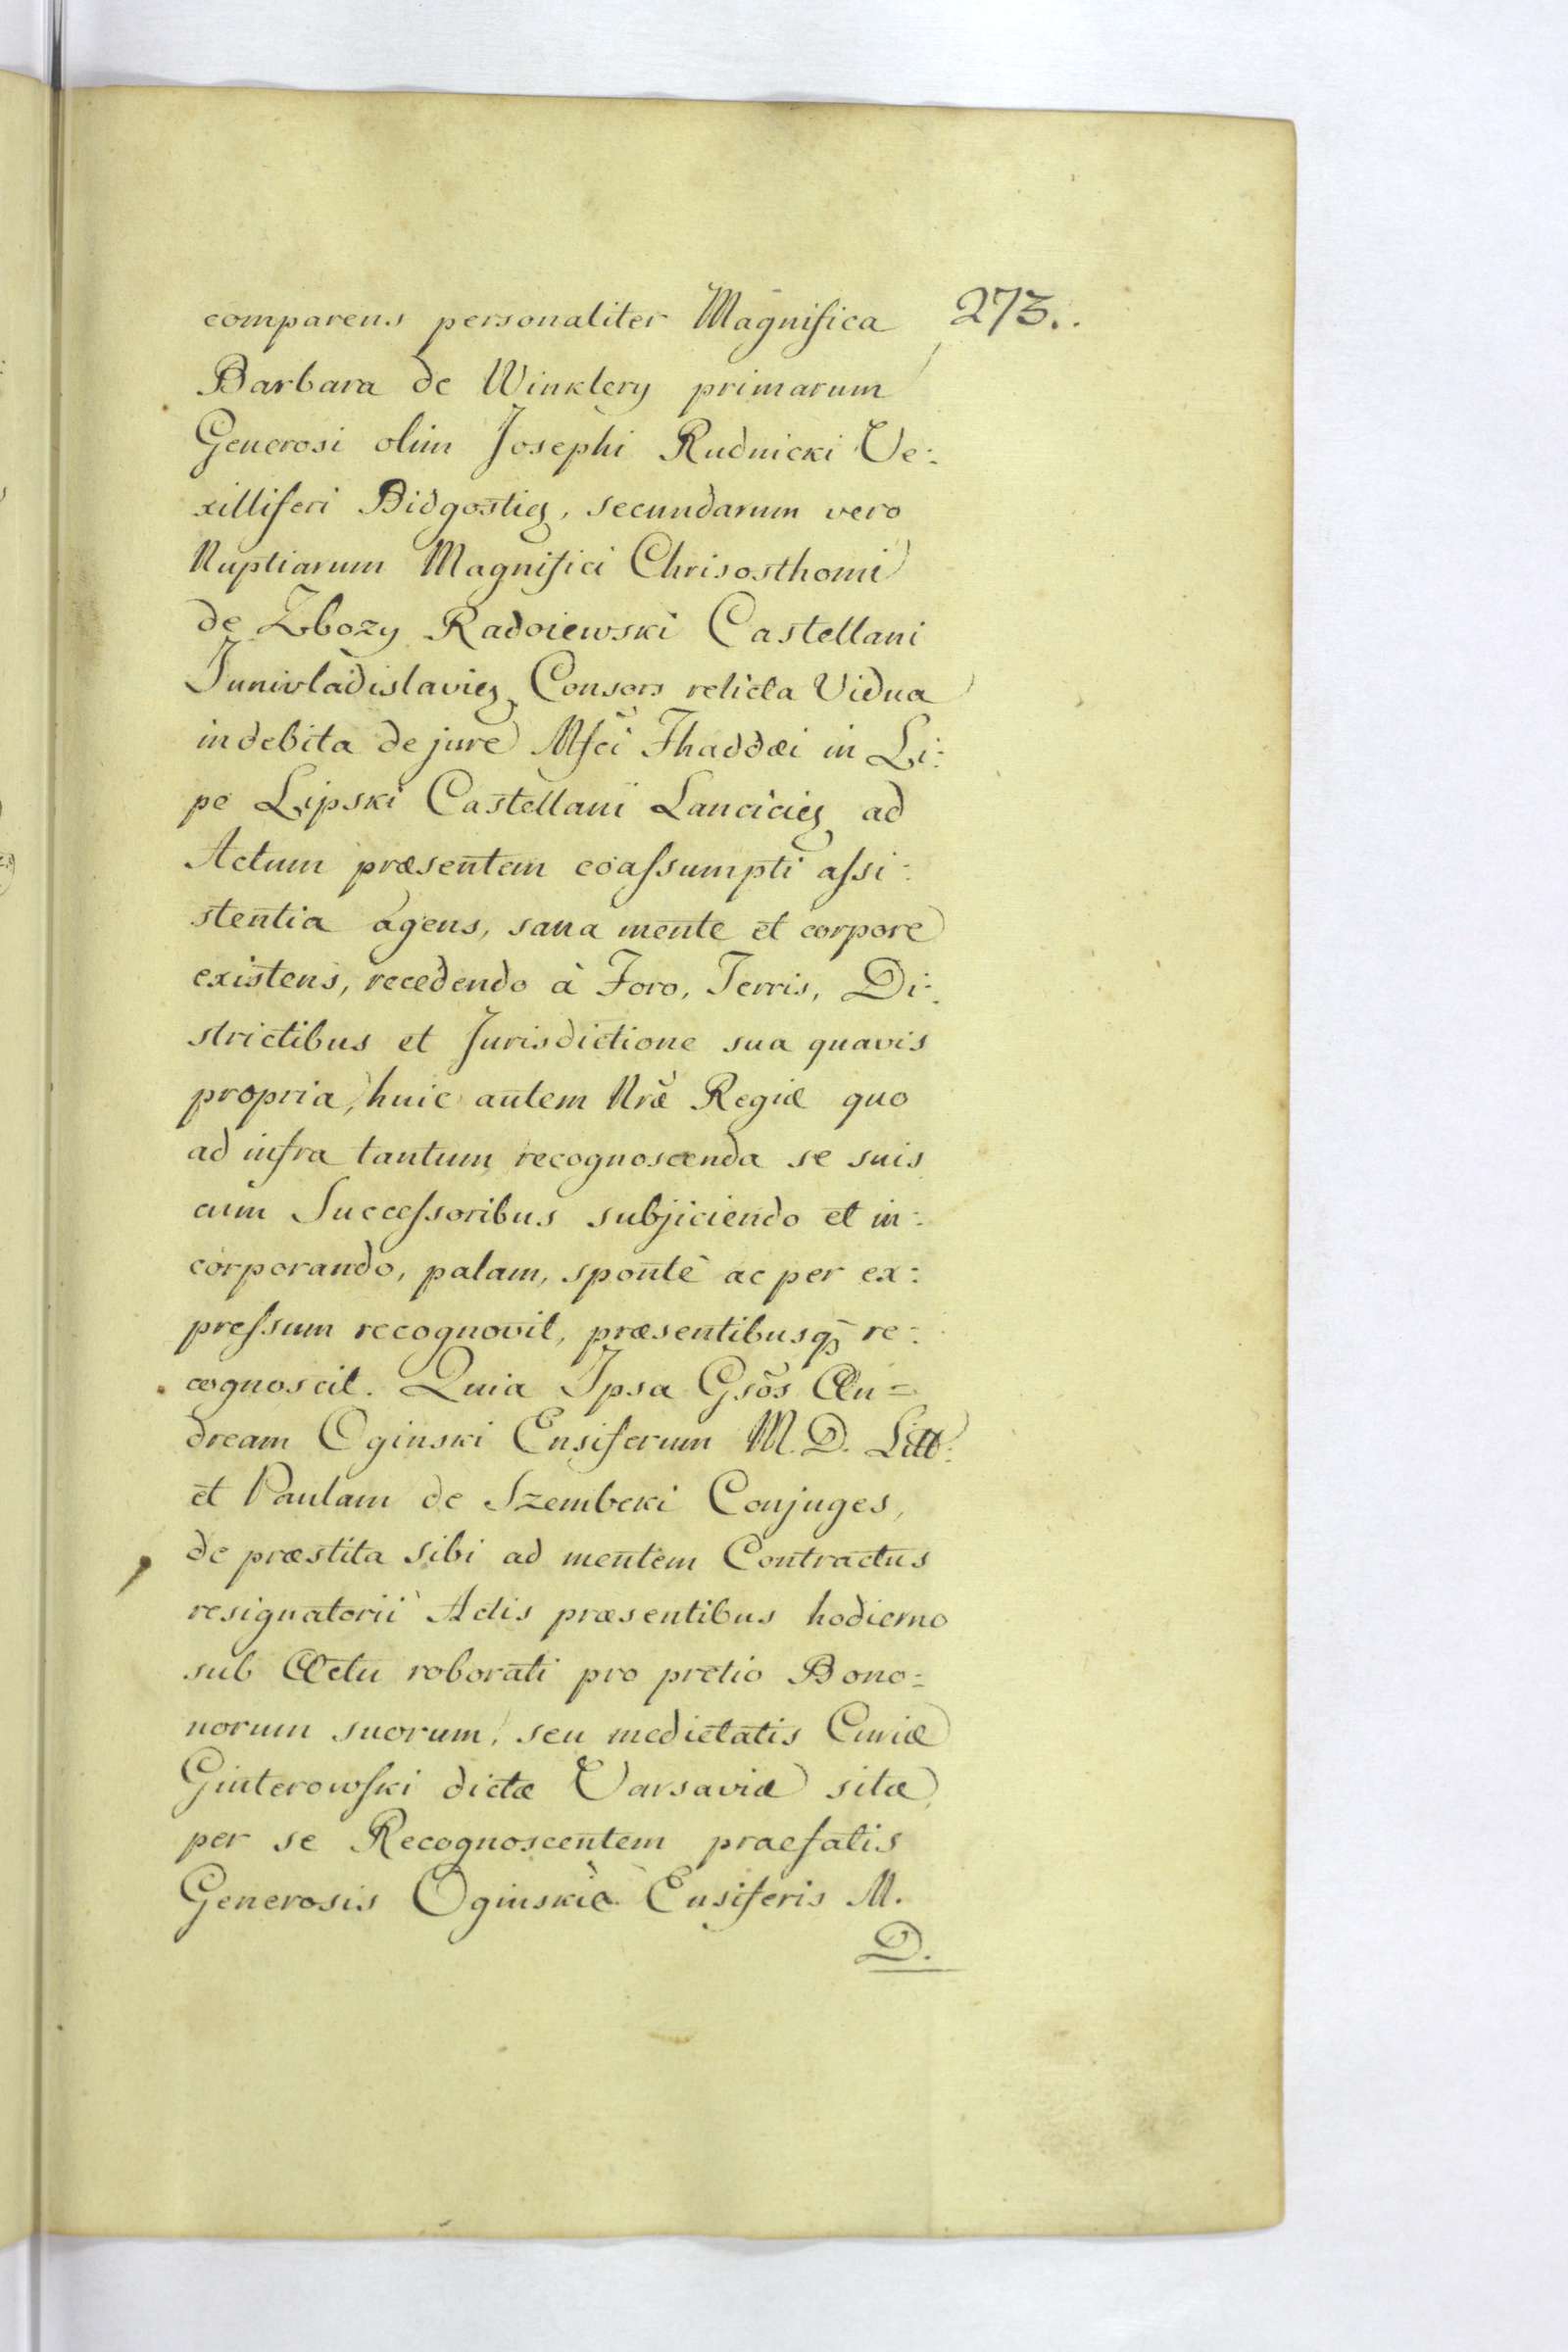 273..
comparens personaliter Magnifica
Barbara de Winklery primarum
Generosi olim Josephi Rudnicki Ve:
xilliferi Bidgostieŋ, secundarum vero
Nuptiarum Magnifici Chrisosthomi
de Zbozy Radoiewski Castellani
Junivladislavieŋ Consors relicta Vidua
in debita de jure Mfci Thaddæi in Li:
pe Lipski Castellani Lancicieŋ ad
Actum præsentem coaſsumpti aſsi:
stentia agens, sana mente et corpore
existens, recedendo à Foro, Terris, Di:
strictibus et Jurisdictione sua quavis
propria, huic autem Nræ Regiæ quo
ad infra tantum recognoscenda se suis
cum Succeſsoribus subjiciendo et in:
corporando, palam, sponte ac per ex:
preſsum recognovit, præsentibusqȝ re:
cognoscit. Quia Ipsa Gsos An=
dream Oginski Ensiferum M. D. Litt:
et Paulam de Szembeki Conjuges,
de præstita sibi ad mentem Contractus
resignatorii Actis præsentibus hodierno
sub Actu roborati pro pretio Bono=
norum suorum, seu medietatis Curiæ
Ginterowſki dictæ Varsaviæ sitæ,
per se Recognoscentem praefatis
Generosis Oginskie Ensiferis M.
D.